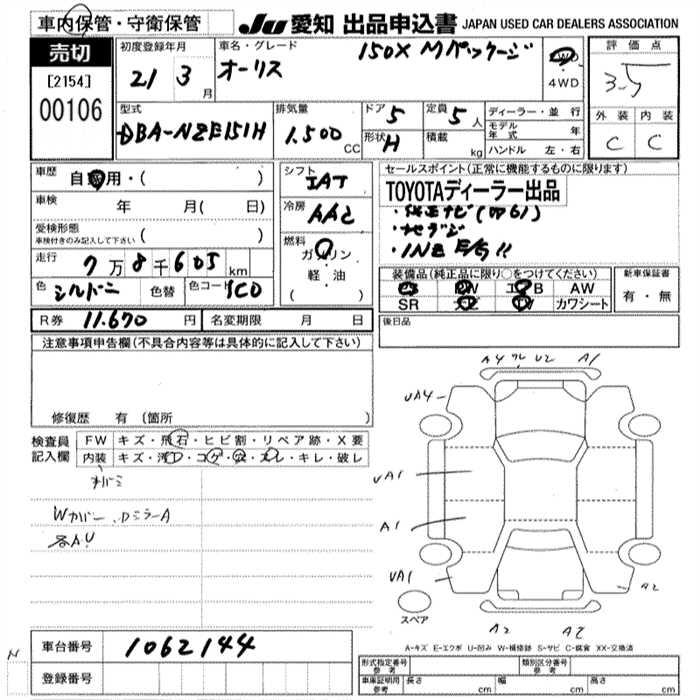 車内保管・守衛保管
JU 愛知 出品申込書 JAPAN USED CAR DEALERS ASSOCIATION
売切
[2154]
00106
初度登録年月
21 3 月
車名・グレード
オーリス 150X Mパッケージ
4WD
評価点
3.5
外装 内装
C C
型式
DBA-NZE151H
排気量
1.500 CC
ドア 5
形状 H
定員 5 人
積載 kg
ディーラー・並行
モデル年式 年
ハンドル 左・右
車歴 自家用・( )
車検 年 月( 日)
受検形態
車検付きのみ記入して下さい ( )
走行 7万8千605km
色 シルバー 色替 色コード 1C0
シフト IAT
冷房 AAC
燃料 ガソリン
軽・油
( )
セールスポイント(正常に機能するものに限ります)
TOYOTAディーラー出品
・純正ナビ
・地デジ
・1NZ E/G!!
装備品(純正品に限り○をつけてください)
PS PW エアB AW
SR ナビ TV カワシート
新車保証書
有・無
R券 11.670 円 名変期限 月 日
後日品
注意事項申告欄(不具合内容等は具体的に記入して下さい)
修復歴 有 (箇所 )
検査員記入欄
FW キズ・飛石・ヒビ割・リペア跡・X要
内装 キズ・汚れ・コゲ・穴・スレ・キレ・破レ
Wカバー.ドミラーA
各A.U
A4 ワレ U2 A1
UA4
UA1
A1
UA1
A2
A2 A2
スペア
A-キズ E-エクボ U-凹み W-補修跡 S-サビ C-腐食 XX-交換済
車台番号 1062144
登録番号
N
形式指定番号
参考
類別区分番号
参考
車庫証明用
参考
長さ cm 幅 cm 高さ cm